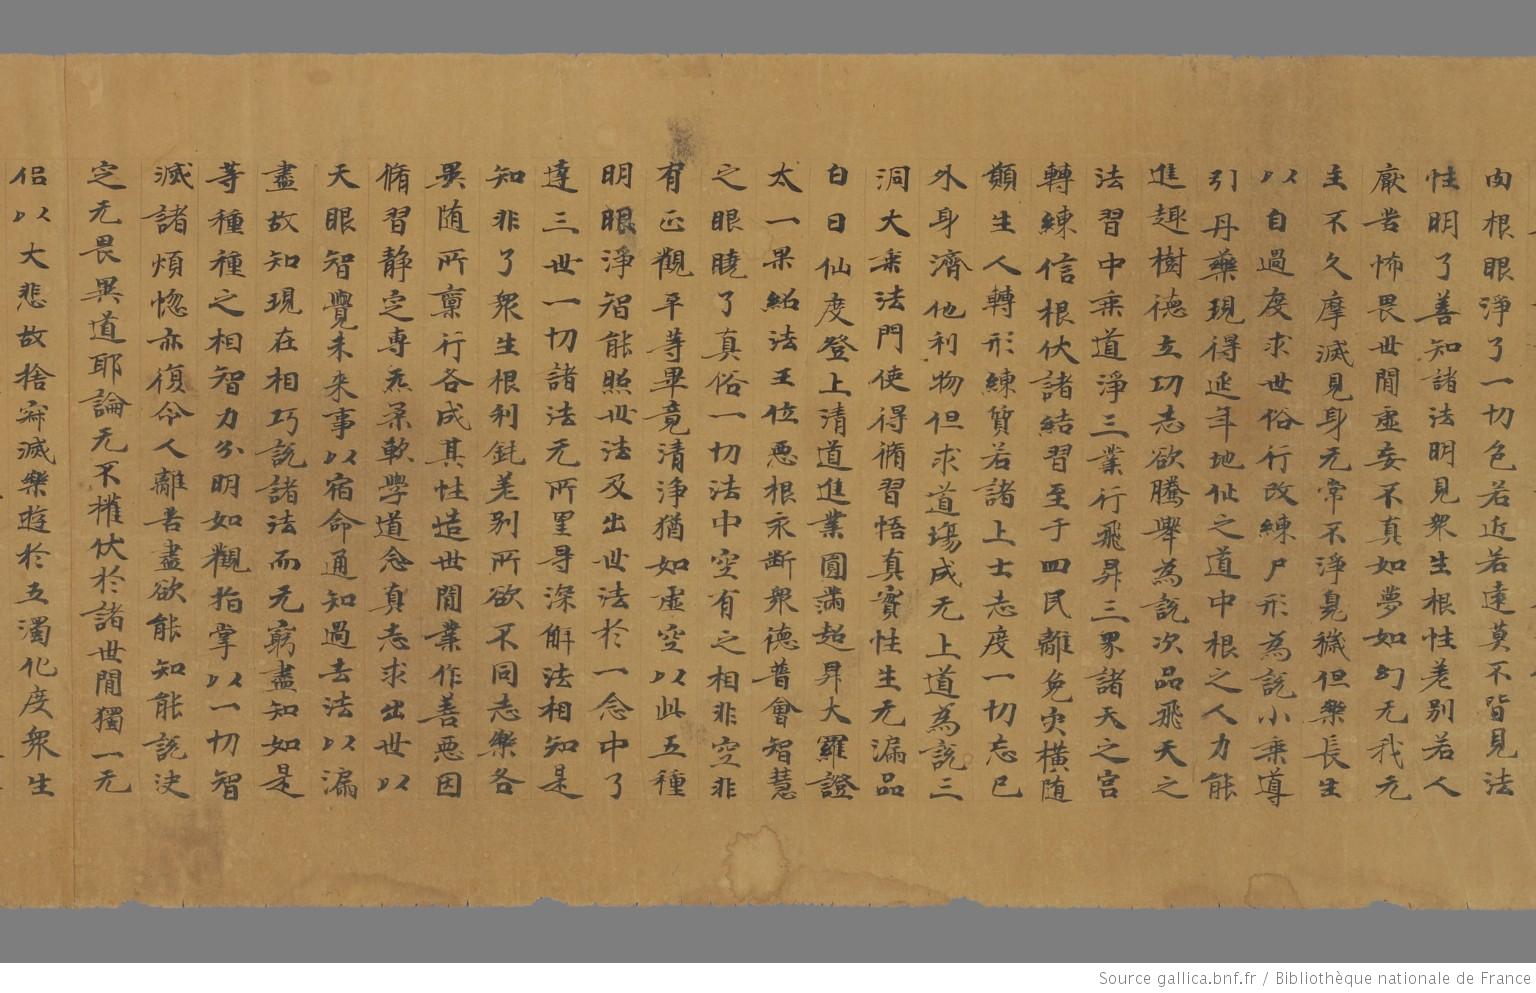 内根眼淨了一切色若近若逺莫不皆見法
性明了善知諸法明見衆生根性差別若人
厭苦怖畏世閒虛妄不真如夢如幻无我无
主不久摩滅見身无常不淨臰穢但樂長生
以自過度求世俗行改練尸形為說小乘導
引丹藥現得延年地仙之道中根之人力能
進趣樹德立功志欲騰舉為說次品飛天之
法習中乘道淨三業行飛昇三界諸天之宫
轉練信根伏諸結習至于四民離免灾橫随
願生人轉形練質若諸上士志度一切忘已
外身濟他利物但求道塲成无上道為說三
洞大乘法門使得脩習悟真實性生无漏品
白日仙度登上清道進業圓滿超昇大羅證
太一果紹法王位悪根永斷衆德普會智慧
之眼曉了真俗一切法中空有之相非空非
有正觀平等畢竟清淨猶如虛空以此五種
明眼淨智能照世法及出世法於一念中了
達三世一切諸法无所罣㝵深解法相知是
知非了衆生根利鈍差别所欲不同志樂各
異随所禀行各成其性造世閒業作善悪因
脩習静定專炁柔軟學道念真志求出世以
天眼智覺未来事以宿命通知過去法以漏
盡故知現在相巧說諸法而无窮盡知如是
等種種之相智力分明如觀指掌以一切智
滅諸煩惚亦復令人離苦盡欲能知能説决
定无畏異道耶論无不摧伏於諸世閒獨一无
侣以大悲故捨寂滅樂遊於五濁化度衆生
Source gallica.bnf.fr / Bibliothèque nationale de France